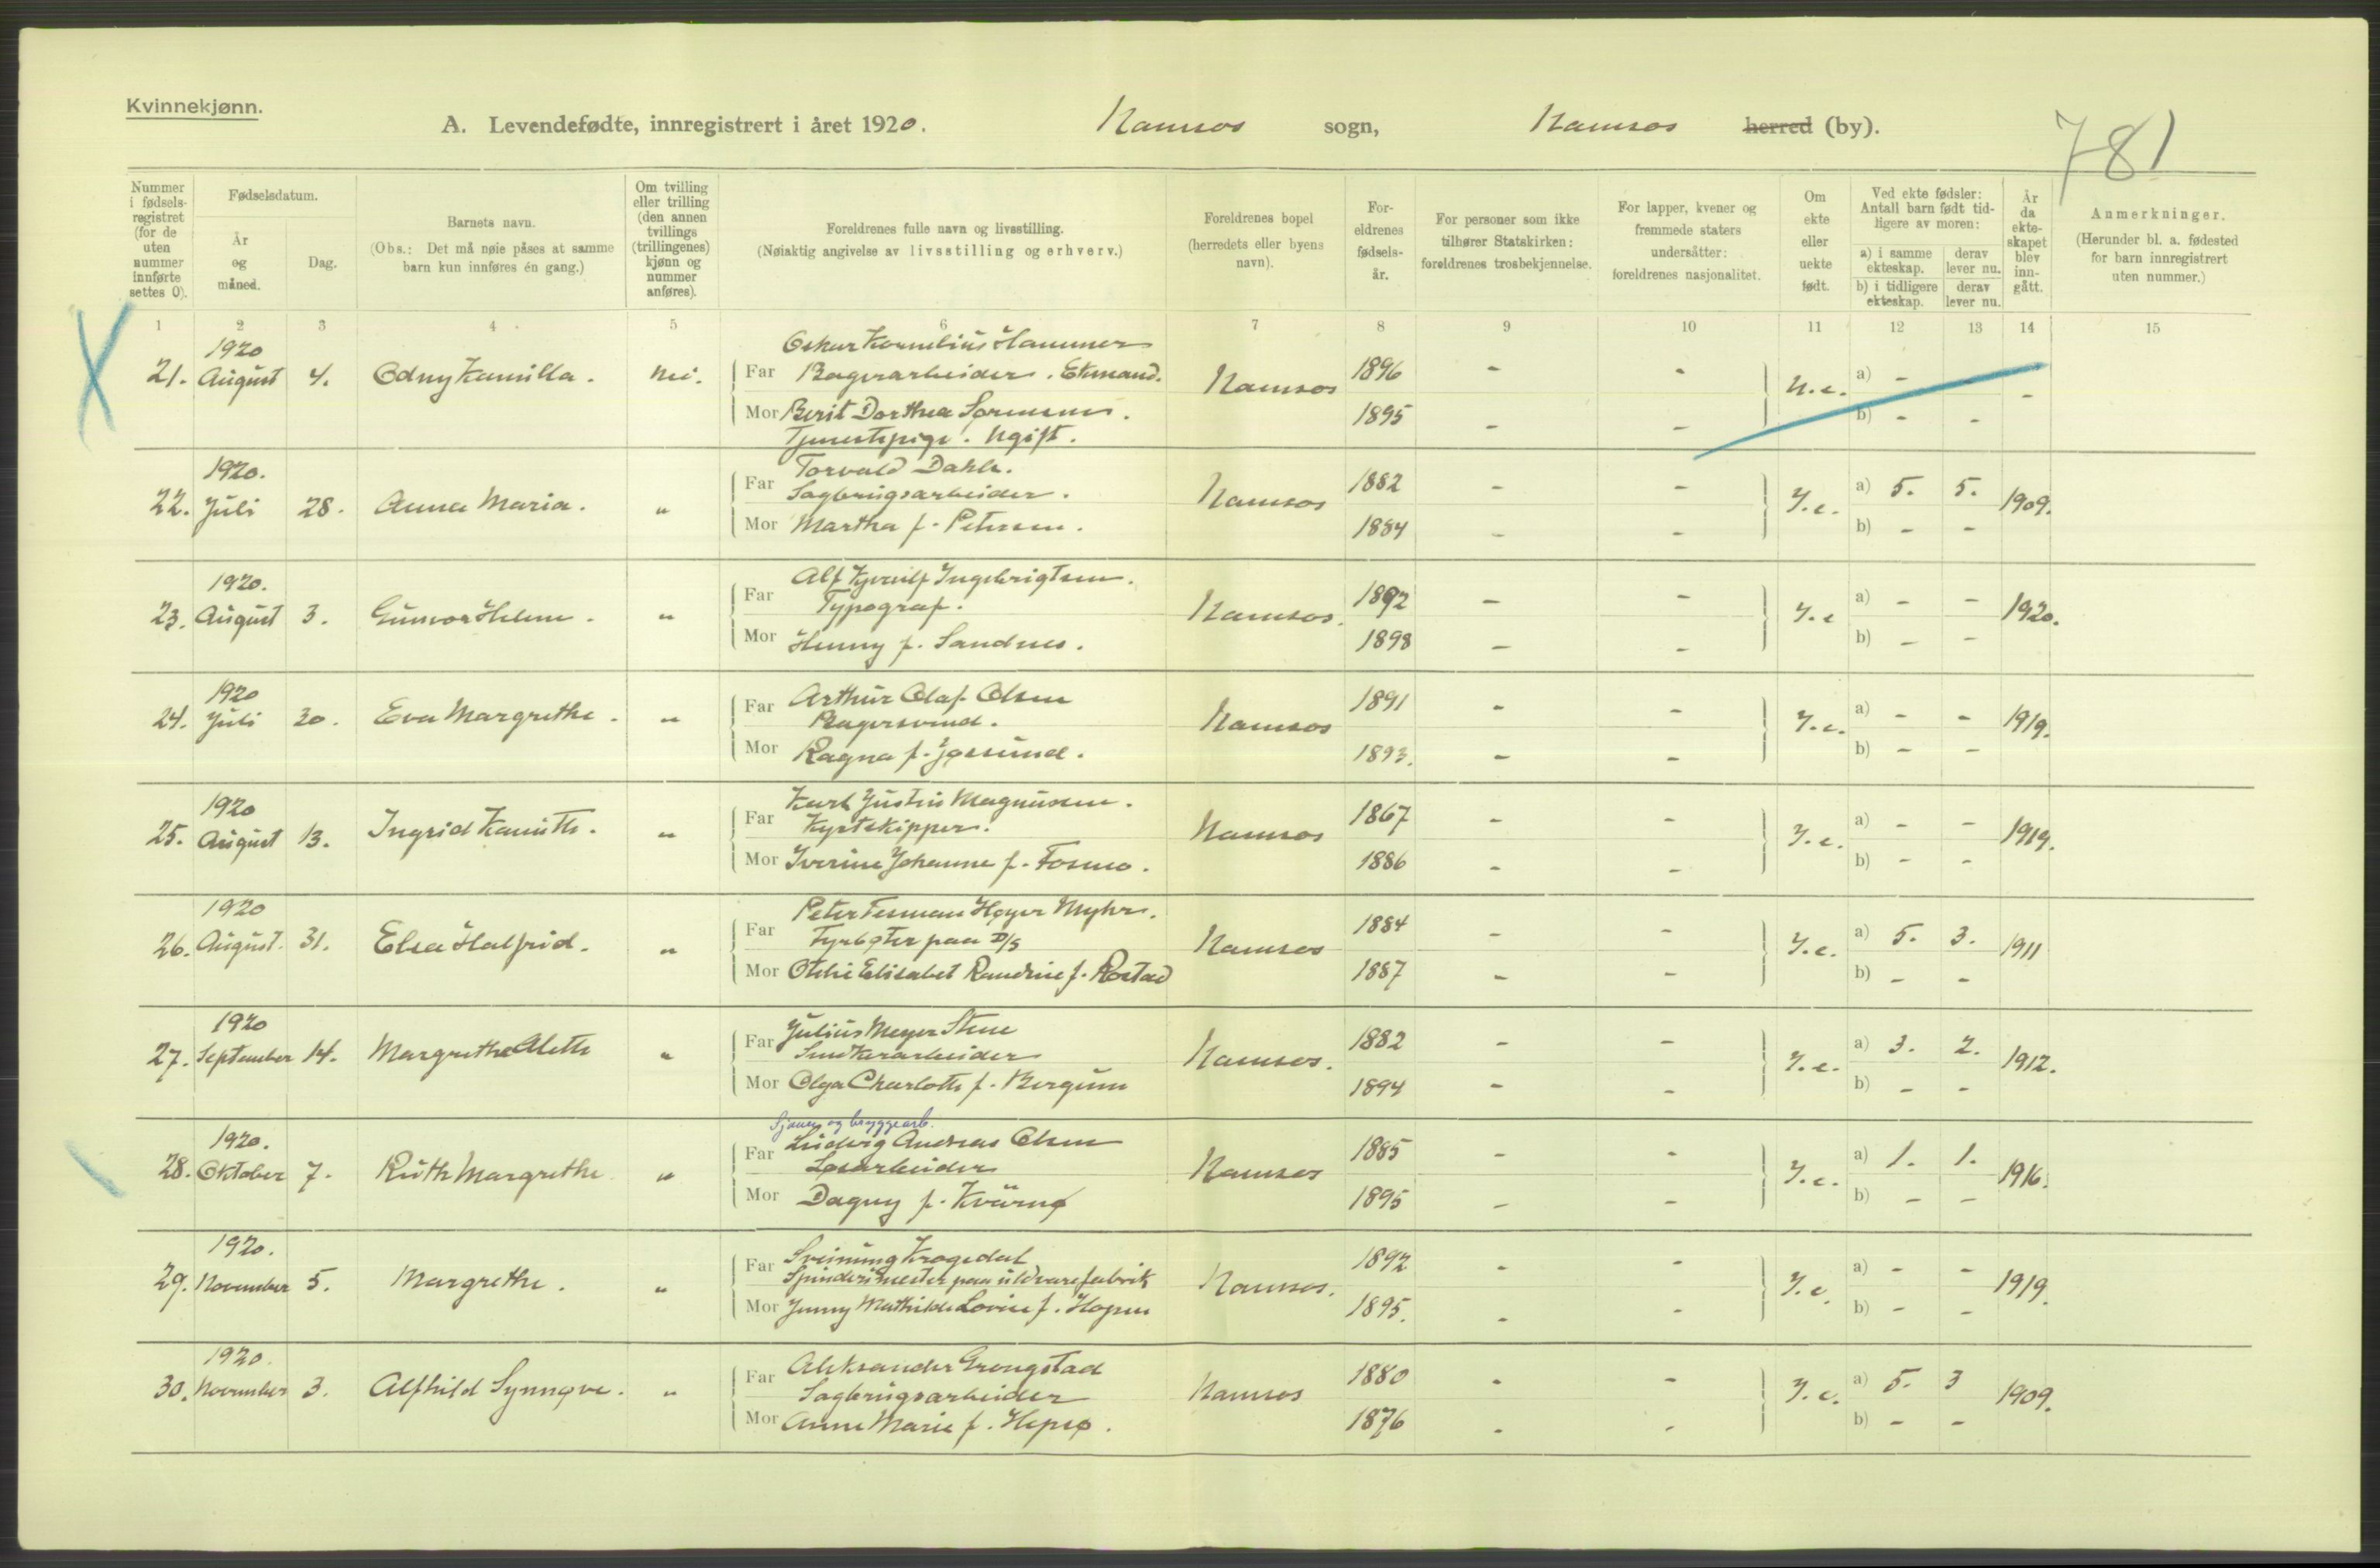 Kvinnekjønn.
A. Levendefødte, innregistrert i året 1920. Namsos sogn, Namsos herred (by).
781
Nummer i fødselsregistret (for de uten nummer innførte settes 0).
Fødselsdatum.
År og måned.
Dag.
Barnets navn.
(Obs.: Det må nøie påses at samme barn kun innføres én gang.)
Om tvilling eller trilling (den annen tvillings (trillingenes) kjønn og nummer anføres).
Foreldrenes fulle navn og livsstilling.
(Nøiaktig angivelse av livsstilling og erhverv.)
Foreldrenes bopel (herredets eller byens navn).
Foreldrenes fødselsår.
For personer som ikke tilhører Statskirken: foreldrenes trosbekjennelse.
For lapper, kvener og fremmede staters undersåtter: foreldrenes nasjonalitet.
Om ekte eller uekte født.
Ved ekte fødsler: Antall barn født tidligere av moren:
a) i samme ekteskap. derav lever nu.
b) i tidligere ekteskap. derav lever nu.
År da ekteskapet blev inngått.
Anmerkninger.
(Herunder bl. a. fødested for barn innregistrert uten nummer.)
1 2 3 4 5 6 7 8 9 10 11 12 13 14 15
1920
Oskar Kornelius Hammer
21. August 4. Odny Kamilla. Nei. Far Bagerarbeider. Ekmand. Namsos 1896 - - U.e. a) -
Mor Berit Dorthea Sørensen. 1895 - - b) - - -
Tjenestepige. Ugift.
1920.
Torvald Dahle.
22. Juli 28. Anna Maria. " Far Sagbrugsarbeider. Namsos 1882 - - I.e. a) 5. 5. 1909.
Mor Martha f. Petersen. 1884 - - b) - -
1920.
Alf Ingebrigtsen.
23. August 3. Gunvor Helene. " Far Typograf. Namsos. 1892 - - I.e a) - - 1920.
Mor Henny f. Sandnes. 1898 - - b) - -
1920
Arthur Olaf Olsen
24. Juli 30. Eva Margrethe. " Far Bagersvend. Namsos 1891 - - I.e. a) - - 1919.
Mor Ragna f. Jøssund. 1893. - - b) - -
1920
Karl Justin Magnussen.
25. August 13. Ingrid " Far Kystskipper. Namsos 1867 - - I.e. a) - - 1919.
Mor Iverine Johanne f. Fosmo. 1886 - - b) - -
1920
Peter Høyer Myhre.
26. August. 31. Elsa Halfrid. " Far Fyrbøter paa D/S Namsos 1884 - - I.e. a) 5. 3. 1911
Mor Otelie Elisabet Randine f. Rostad 1887 - - b) - -
1920
Julius Meyer Stene
27. September 14. Margrethe Alette " Far Namsos. 1882 - - I.e. a) 3. 2. 1912.
Mor Olga Charlotte f. Bergum 1894 - - b) - -
Sjauer og bryggearb.
1920.
Ludvig Andreas Olsen
28. Oktober 7. Ruth Margrethe " Far Løsarbeider Namsos 1885 - - I.e. a) 1. 1. 1916.
Mor Dagny f. Kværnø 1895 - - b) - -
1920.
Sveinung Krogedal
29. November 5. Margrethe. " Far Spinderimester paa uldvarefabrik Namsos. 1892 - - I.e. a) - - 1919.
Mor Jenny Mathilde Lovise f. Hopen 1895. - - b) - -
1920.
Aleksander Grongstad
30. November 3. Alfhild Synnøve. " Far Sagbrugsarbeider Namsos 1880 - - I.e. a) 5. 3 1909.
Mor Anne Marie f. Hepsø. 1876 - - b) - -